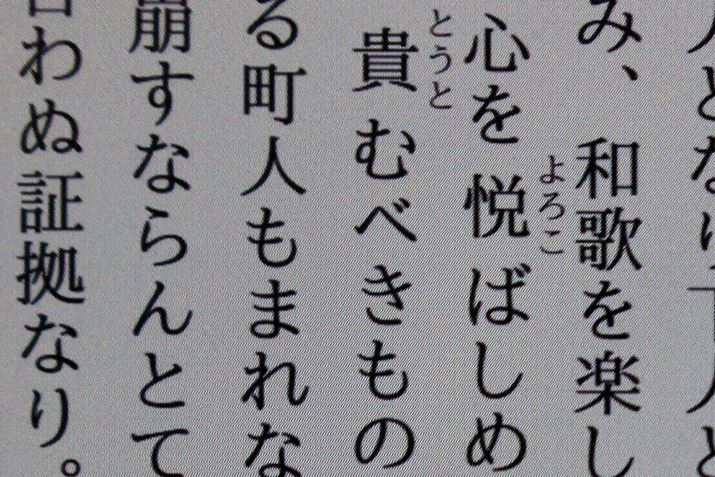 人となり、人と
み、和歌を楽し
心を悦ばしめ
よろこ
貴むべきもの
とうと
る町人もまれな
崩すならんとて
言わぬ証拠なり。